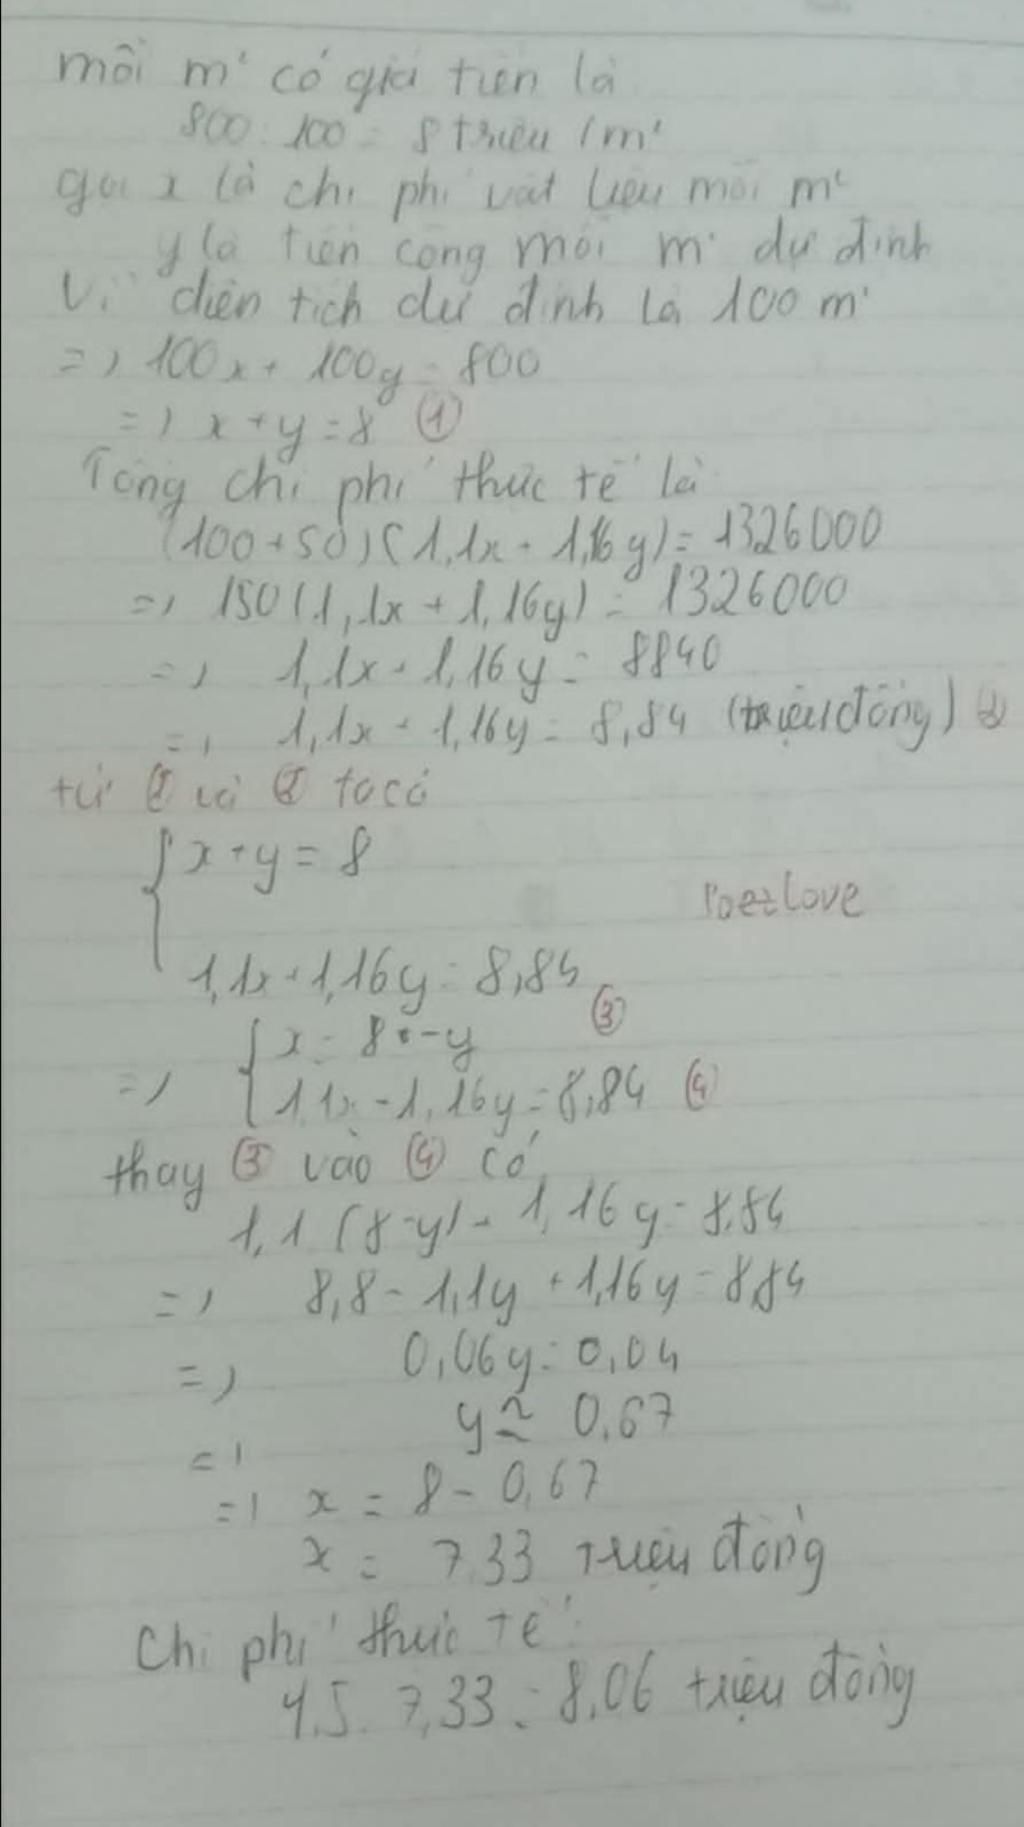 mỗi m² có giá tiền là
800 : 100 = 8 triệu /m²
gọi x là chi phí vật liệu mỗi m²
y là tiền công mỗi m² dự định
Vì diện tích dự định là 100 m²
=> 100x + 100y = 800
=> x + y = 8 ①
Tổng chi phí thực tế là
(100 + 50)(1,1x + 1,16y) = 1326000
=> 150(1,1x + 1,16y) = 1326000
=> 1,1x + 1,16y = 8840
=> 1,1x + 1,16y = 8,84 (triệu/đồng) ②
từ ① và ② ta có
{ x + y = 8
1,1x + 1,16y = 8,84
=> { x = 8 - y ③
1,1x + 1,16y = 8,84 ④
thay ③ vào ④ có
1,1 (8-y) + 1,16y = 8,84
=> 8,8 - 1,1y + 1,16y = 8,84
=> 0,06y = 0,04
=> y ≈ 0,67
=> x = 8 - 0,67
x = 7,33 triệu đồng
Chi phí thực tế:
7,33 = 8,06 triệu đồng